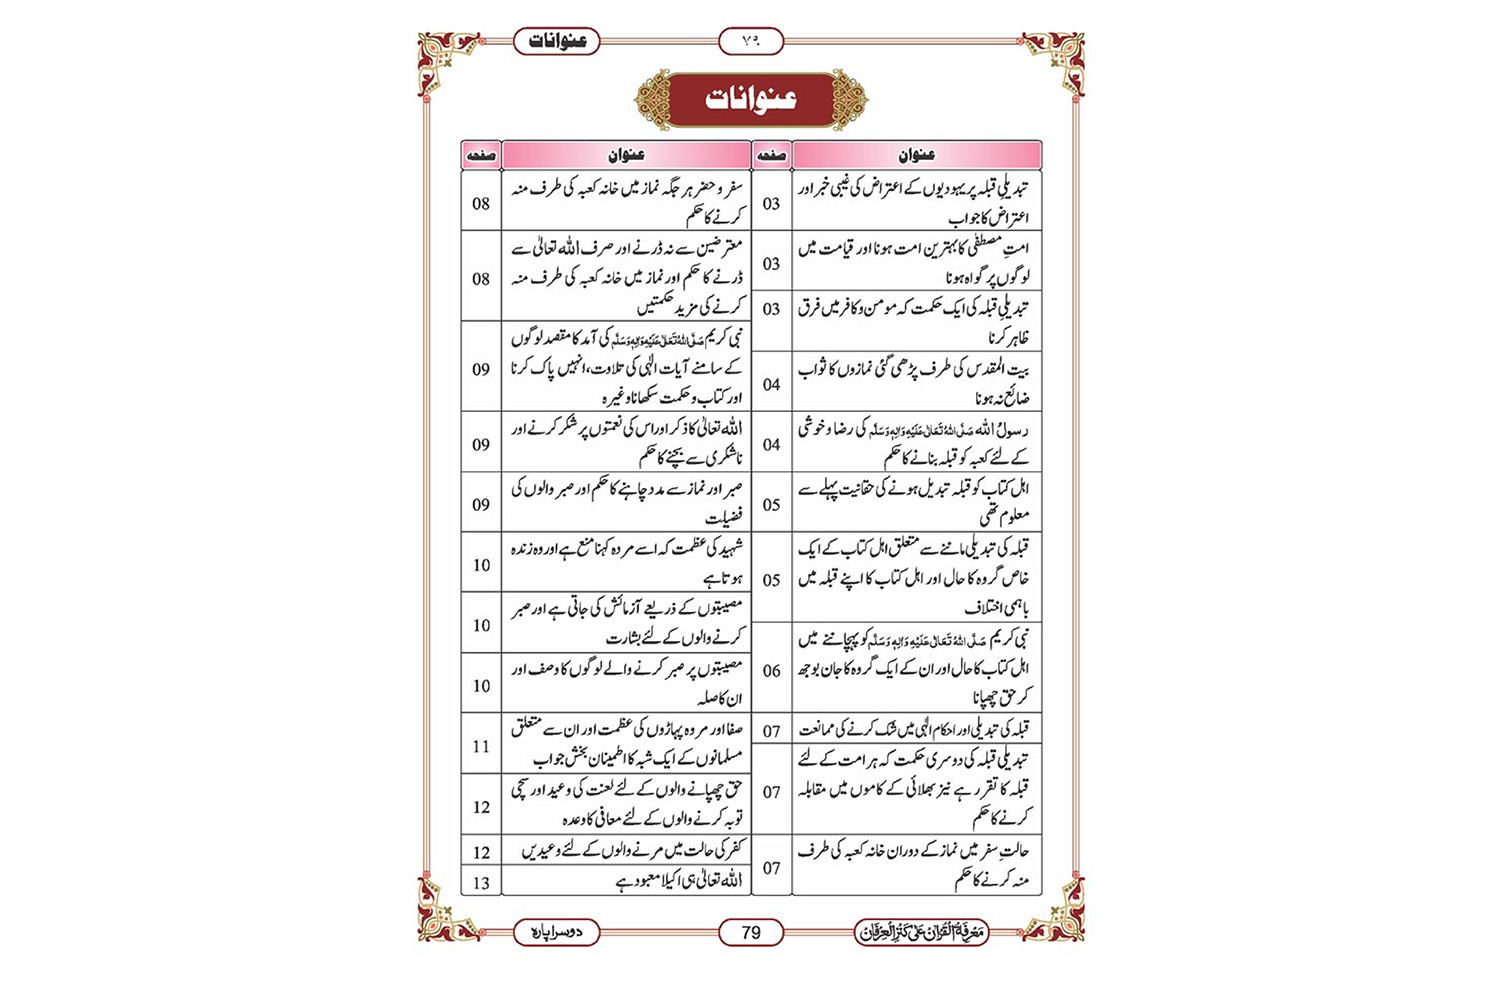 عنوانات
۷۹
عنوانات
عنوان
صفحه
تبدیلیِ قبلہ پر یہودیوں کے اعتراض کی غیبی خبر اور
اعتراض کا جواب
03
امتِ مصطفٰی کا بہترین امت ہونا اور قیامت میں
لوگوں پر گواہ ہونا
03
تبدیلیِ قبلہ کی ایک حکمت کہ مومن و کافر میں فرق
ظاہر کرنا
03
بیت المقدس کی طرف پڑھی گئی نمازوں کا ثواب
ضائع نہ ہونا
04
رسولُ اللہ صَلَّی اللہُ تَعَالٰی عَلَیْہِ وَاٰلِہٖ وَسَلَّم کی رضا و خوشی
کے لئے کعبہ کو قبلہ بنانے کا حکم
04
اہل کتاب کو قبلہ تبدیل ہونے کی حقانیت پہلے سے
معلوم تھی
05
قبلہ کی تبدیلی ماننے سے متعلق اہل کتاب کے ایک
خاص گروہ کا حال اور اہل کتاب کا اپنے قبلہ میں
باہمی اختلاف
05
نبی کریم صَلَّی اللہُ تَعَالٰی عَلَیْہِ وَاٰلِہٖ وَسَلَّم کو پہچاننے میں
اہل کتاب کا حال اور ان کے ایک گروہ کا جان بوجھ
کر حق چھپانا
06
قبلہ کی تبدیلی اور احکام الٰہی میں شک کرنے کی ممانعت
07
تبدیلیِ قبلہ کی دوسری حکمت کہ ہر امت کے لئے
قبلہ کا تقرر ہے نیز بھلائی کے کاموں میں مقابلہ
کرنے کا حکم
07
حالتِ سفر میں نماز کے دوران خانہ کعبہ کی طرف
منہ کرنے کا حکم
07
عنوان
صفحه
سفر و حضر ہر جگہ نماز میں خانہ کعبہ کی طرف منہ
کرنے کا حکم
08
معترضین سے نہ ڈرنے اور صرف اللہ تعالیٰ سے
ڈرنے کا حکم اور نماز میں خانہ کعبہ کی طرف منہ
کرنے کی مزید حکمتیں
08
نبی کریم صَلَّی اللہُ تَعَالٰی عَلَیْہِ وَاٰلِہٖ وَسَلَّم کی آمد کا مقصد لوگوں
کے سامنے آیات الٰہی کی تلاوت، انہیں پاک کرنا
اور کتاب و حکمت سکھانا وغیرہ
09
اللہ تعالیٰ کا ذکر اور اس کی نعمتوں پر شکر کرنے اور
ناشکری سے بچنے کا حکم
09
صبر اور نماز سے مدد چاہنے کا حکم اور صبر والوں کی
فضیلت
09
شہید کی عظمت کہ اسے مردہ کہنا منع ہے اور وہ زندہ
ہوتا ہے
10
مصیبتوں کے ذریعے آزمائش کی جاتی ہے اور صبر
کرنے والوں کے لئے بشارت
10
مصیبتوں پر صبر کرنے والے لوگوں کا وصف اور
ان کا صلہ
10
صفا اور مروہ پہاڑوں کی عظمت اور ان سے متعلق
مسلمانوں کے ایک شبہ کا اطمینان بخش جواب
11
حق چھپانے والوں کے لئے لعنت کی وعید اور سچی
توبہ کرنے والوں کے لئے معافی کا وعدہ
12
کفر کی حالت میں مرنے والوں کے لئے وعیدیں
12
اللہ تعالیٰ ہی اکیلا معبود ہے
13
مَعْرِفَۃُ الْقُرْاٰن عَلٰی کَنْزُ الْعِرْفَان
79
دوسرا پارہ